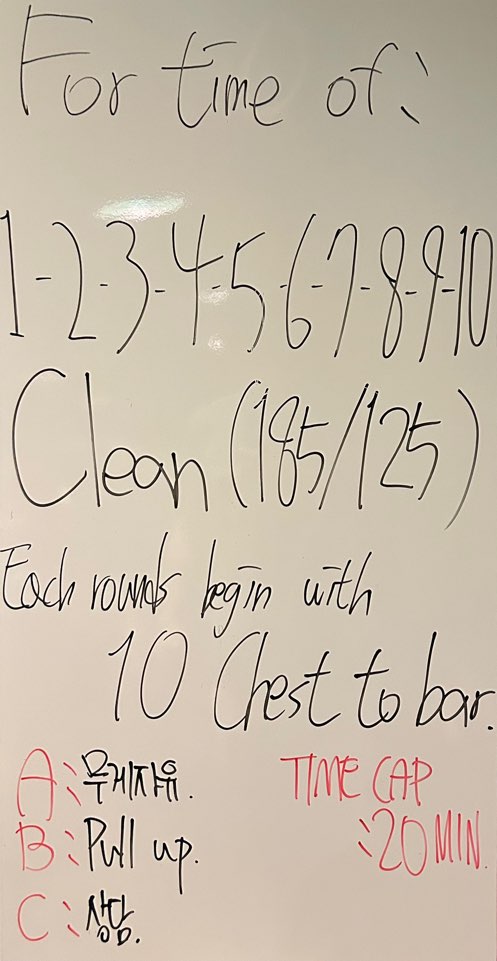 For time of:
1-2-3-4-5-6-7-8-9-10
Clean (185/125)
Each rounds begin with
10 Chest to bar.
A: 무게자유.
TIME CAP
B: Pull up.
:20 MIN.
C: 상담.